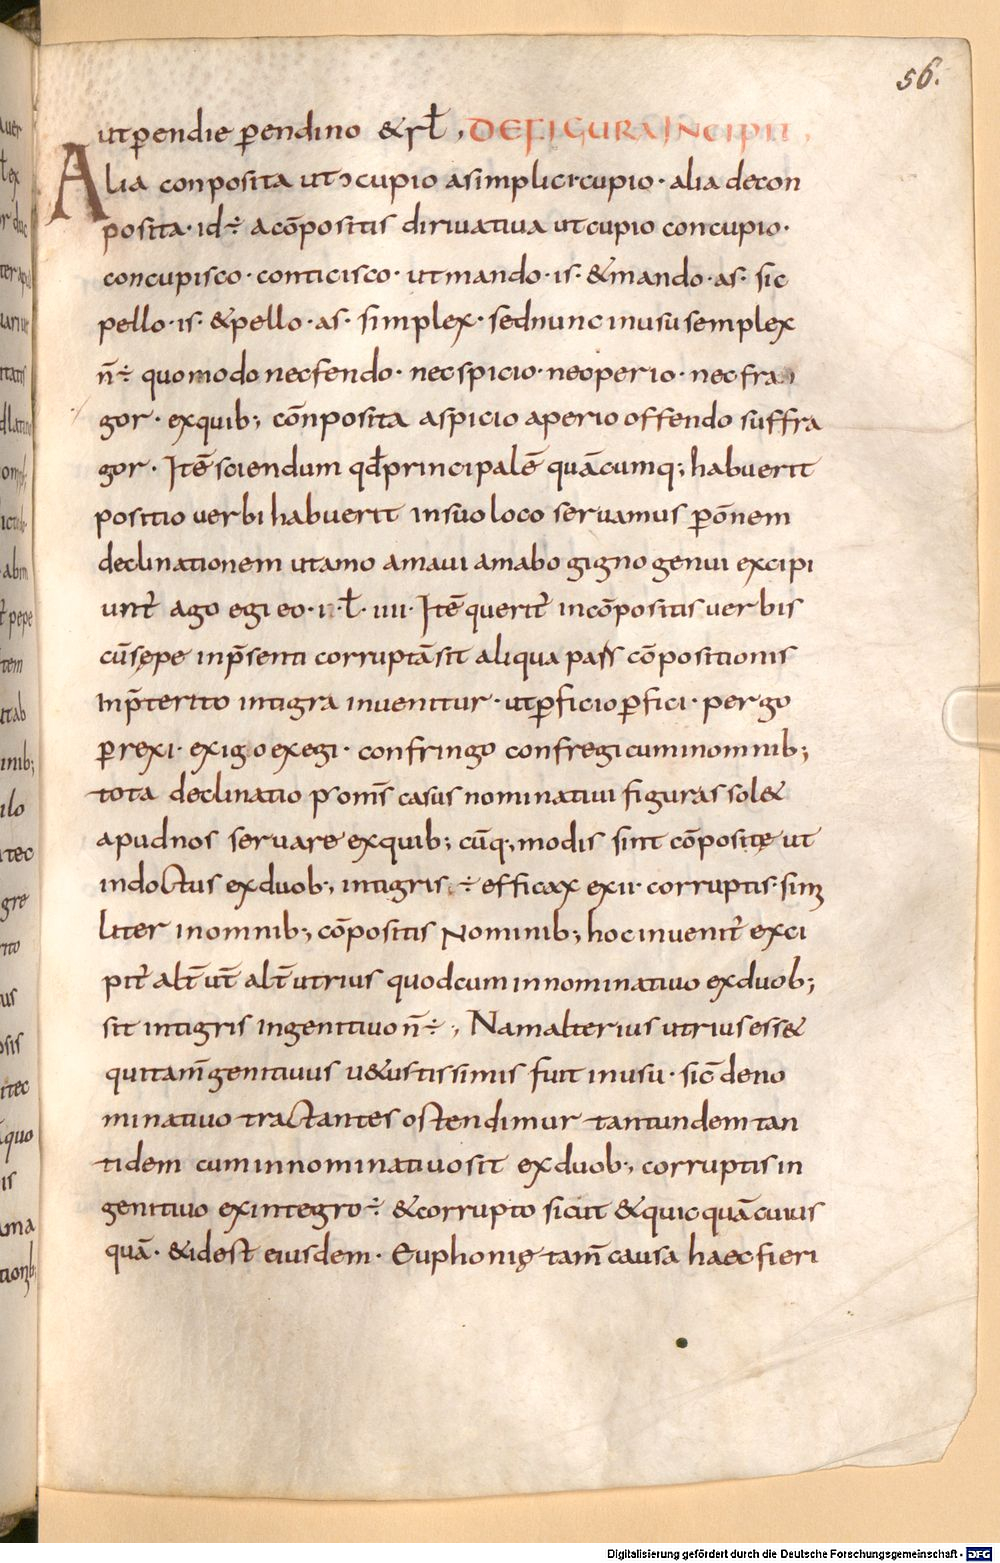 56.
utꝑendie ꝑendino &rł, DEFIGURA INCIPIT,
Alia conposita utↄcupio asimplici cupio · alia decon
posita · id ÷ acōpositis diriuatiua ut cupio concupio ·
concupisco · conticisco · ut mando · is · & mando · as · sic
pello · is · & pello · as · simplex · sed nunc inusu semplex
n̄ ÷ quomodo necfendo · necspicio · necperio · nec fra
gor · exquib; cōnposita aspicio aperio offendo suffra
gor · Itē sciendum qđ principalē quācumq; habuerit
positio uerbi habuerit insuo loco seruamus ꝑōnem
declinationem ut amo amaui amabo gigno genui excipi
unt̄ ago egi eo · i · ł · iiii · Itē querit̄ incōpositis uerbis
cū sępe inp̄senti corruptā sit aliqua pars cōpositionis
Inp̄terito intigra inuenitur · ut ꝑficio ꝑfici · pergo
ꝑrexi · exigo exegi · confringo confregi cum inomnib;
tota declinatio p̄ omīs casus nominatiui figuras sol&
apud nos seruare exquib; cūq; modis sint cōposite̜ ut
indoctus exduob; intigris ÷ efficax exii · corruptis · simi
liter inomnib; cōpositis Nominib; hoc inuenit̄ exci
pit̄ alt̄ ut̄ alt̄utrius quod cum innominatiuo exduob;
sit intigris Ingenitiuo n̄ ÷, Nam alterius utrius ess&
qui tam̄ genitiuus u&ustissimis fuit inusu · sic̄ deno
minatiuo tractantes ostendimur tantundem tan
tidem cum innominatiuo sit exduob; corruptis in
genitiuo exintegro ÷ & corrupto sicut & quic quā cuius
quā · & idest eiusdem · Euphonię tam̄ causa haec fieri
Digitalisierung gefördert durch die Deutsche Forschungsgemeinschaft - DFG